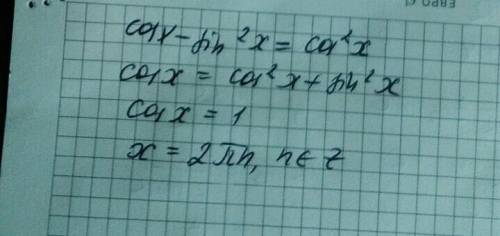 cos x - sin²x = cos²x
cos x = cos²x + sin²x
cos x = 1
x = 2πn, n ∈ Z